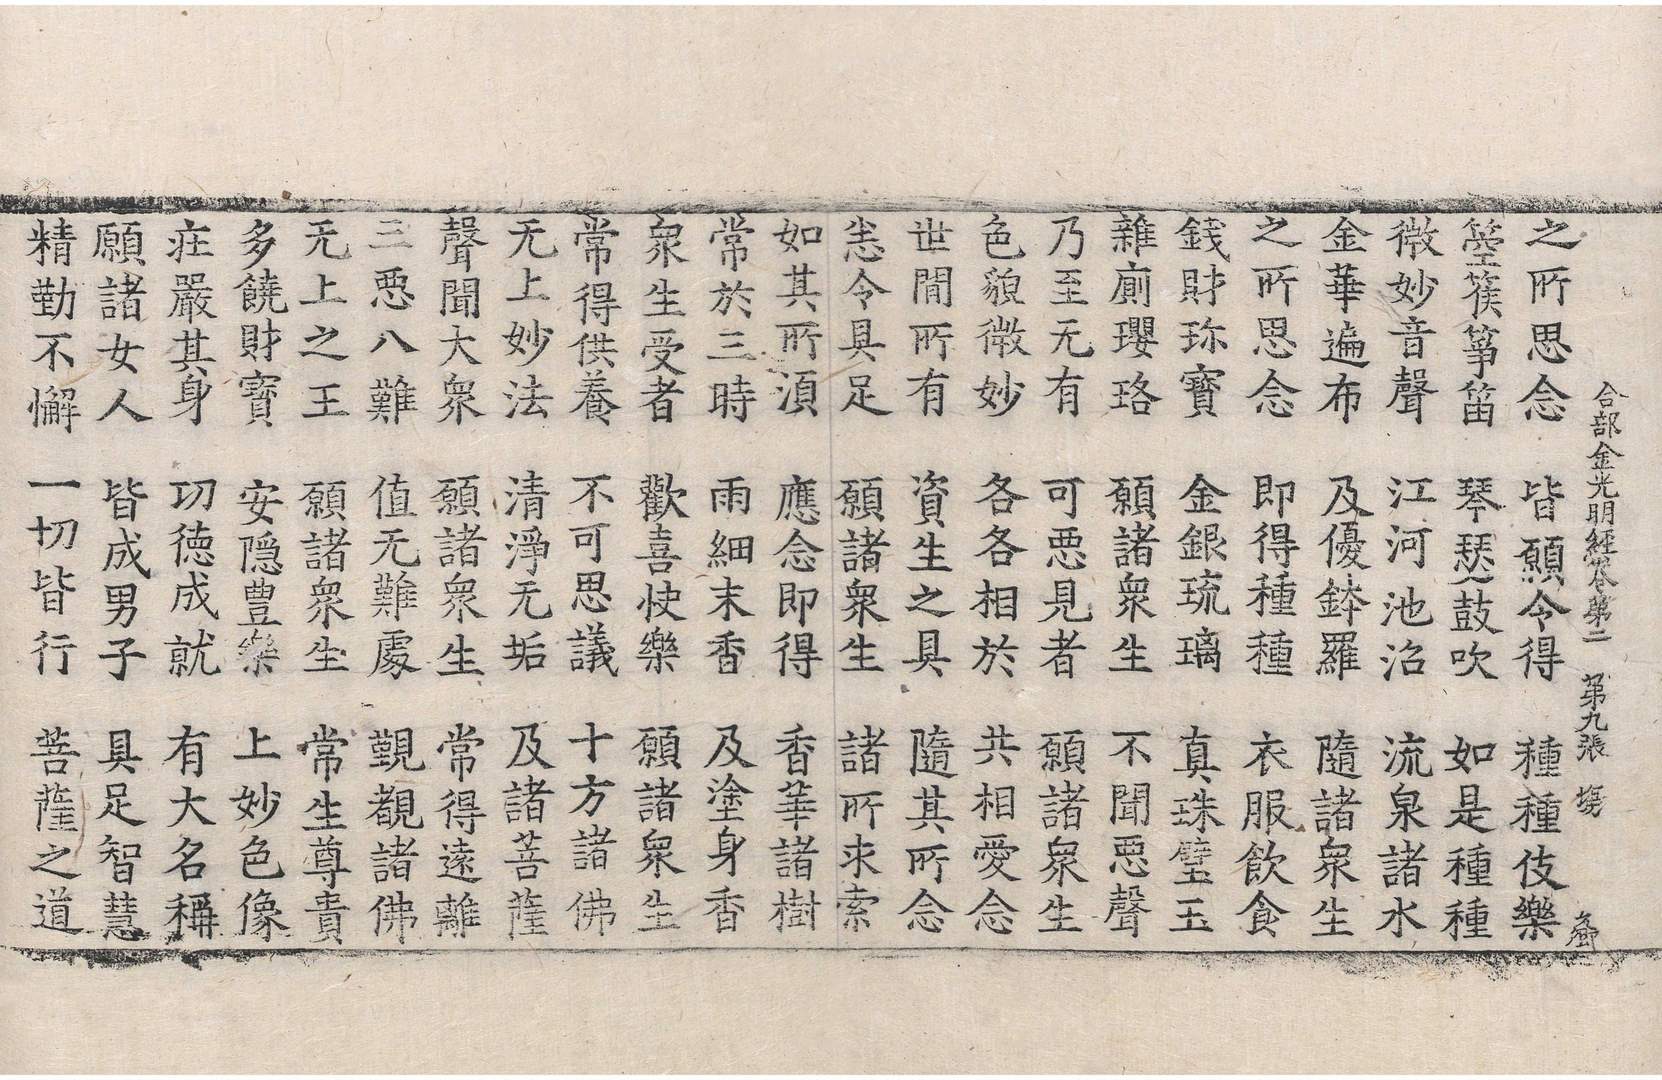 合部金光明經卷第二 第九張 場
之所思念 皆願令得 種種伎樂
箜篌箏笛 琴瑟鼓吹 如是種種
微妙音聲 江河池沼 流泉諸水
金華遍布 及優鉢羅 隨諸衆生
之所思念 即得種種 衣服飲食
錢財珎寶 金銀琉璃 真珠璧玉
雜廁瓔珞 願諸衆生 不聞惡聲
乃至无有 可惡見者 願諸衆生
色貌微妙 各各相於 共相愛念
世間所有 資生之具 隨其所念
悉令具足 願諸衆生 諸所求索
如其所湏 應念即得 香華諸樹
常於三時 雨細末香 及塗身香
衆生受者 歡喜快樂 願諸衆生
常得供養 不可思議 十方諸佛
无上妙法 清淨无垢 及諸菩薩
聲聞大衆 願諸衆生 常得遠離
三惡八難 值无難處 覲覩諸佛
无上之王 願諸衆生 常生尊貴
多饒財寶 安隱豊樂 上妙色像
莊嚴其身 功德成就 有大名稱
願諸女人 皆成男子 具足智慧
精勤不懈 一切皆行 菩薩之道